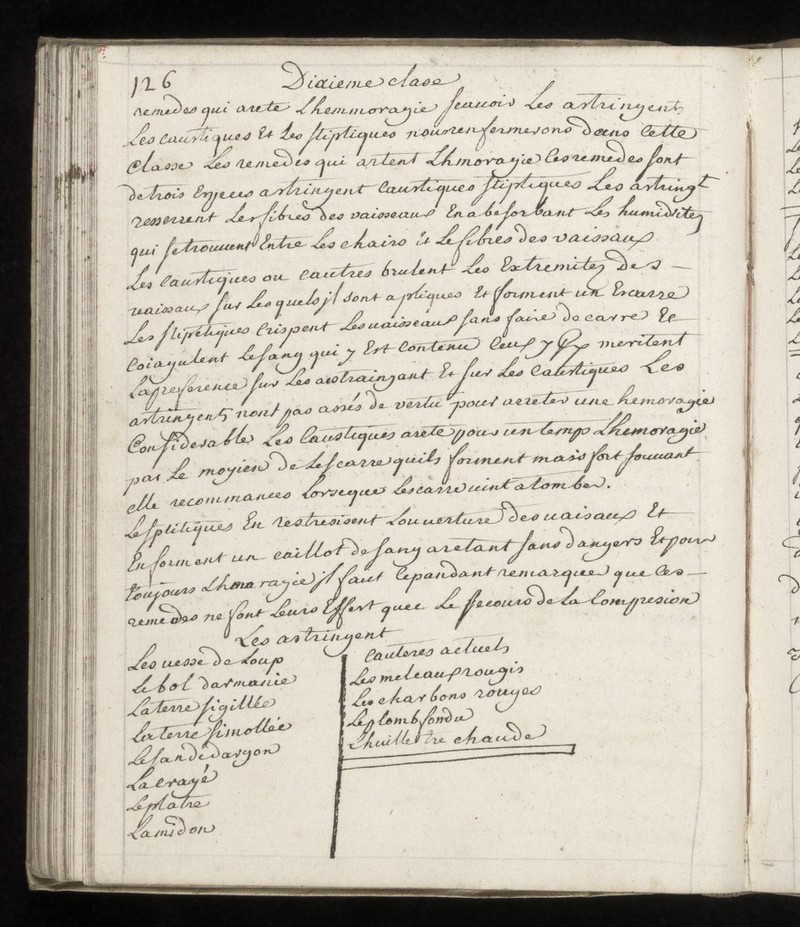 126 Dixieme clase
remedes qui arete Lhemmoragie scauoir Les astringent
Les caustiques Et Les stiptiques nous renfermerons dans Cette
Classe Les remedes qui artent Lhmoragie Ces remedes sont
de trois Especes astringent Caustiques stiptiques Les astringt
resserrent Les fibres des vaisseaux En abesorbant Les humidites
qui se trouuent Entre Les chairs Et Le fibres des vaissaux
Les Caustiques ou cautres brulent Les Extremitez des
uaisaux sur Les quels jl sont apliques Et forment un Escarre
Les stipetiques Crispent Les uaisseaux sans faire de carre Et
Coiagulent Le sang qui y Est Contenu Ceux y meritent
La preference sur Les astraingant Et sur Les Caustiques Les
astringents nont pas assés de vertu pour arreter une hemoragie
Considerable Les Caustiques arete pour un temps Lhemoragie
par Le moyien de Lescarre quils forment mais fort souuant
elle recommances Lorseque Lescarre uint a tomber.
Les ptitiques En restresisent Louuerture des uaisaux Et
En forment un caillot de sang aretant sans dangers Et pour
toujours Lhmaragie jl faut Cepandant remarquer que Ces
remedes ne font Leurs Effert quee Le secours de La Compresion
Les astringent
Les uesse de Loup
Le bol darmanie
La terre sigillée
La terre simollée
Le sandedargon
La crayé
Le platre
Lamidon
Cauteres actuels
Les meteaux rougis
Les charbons rouges
Le plomb fondu
Lhuille tre chaude